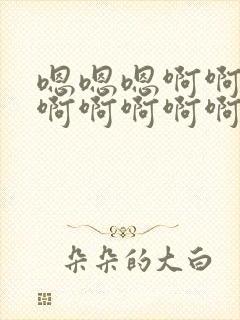 嗯嗯嗯啊啊
啊啊啊啊啊
朵朵的大白